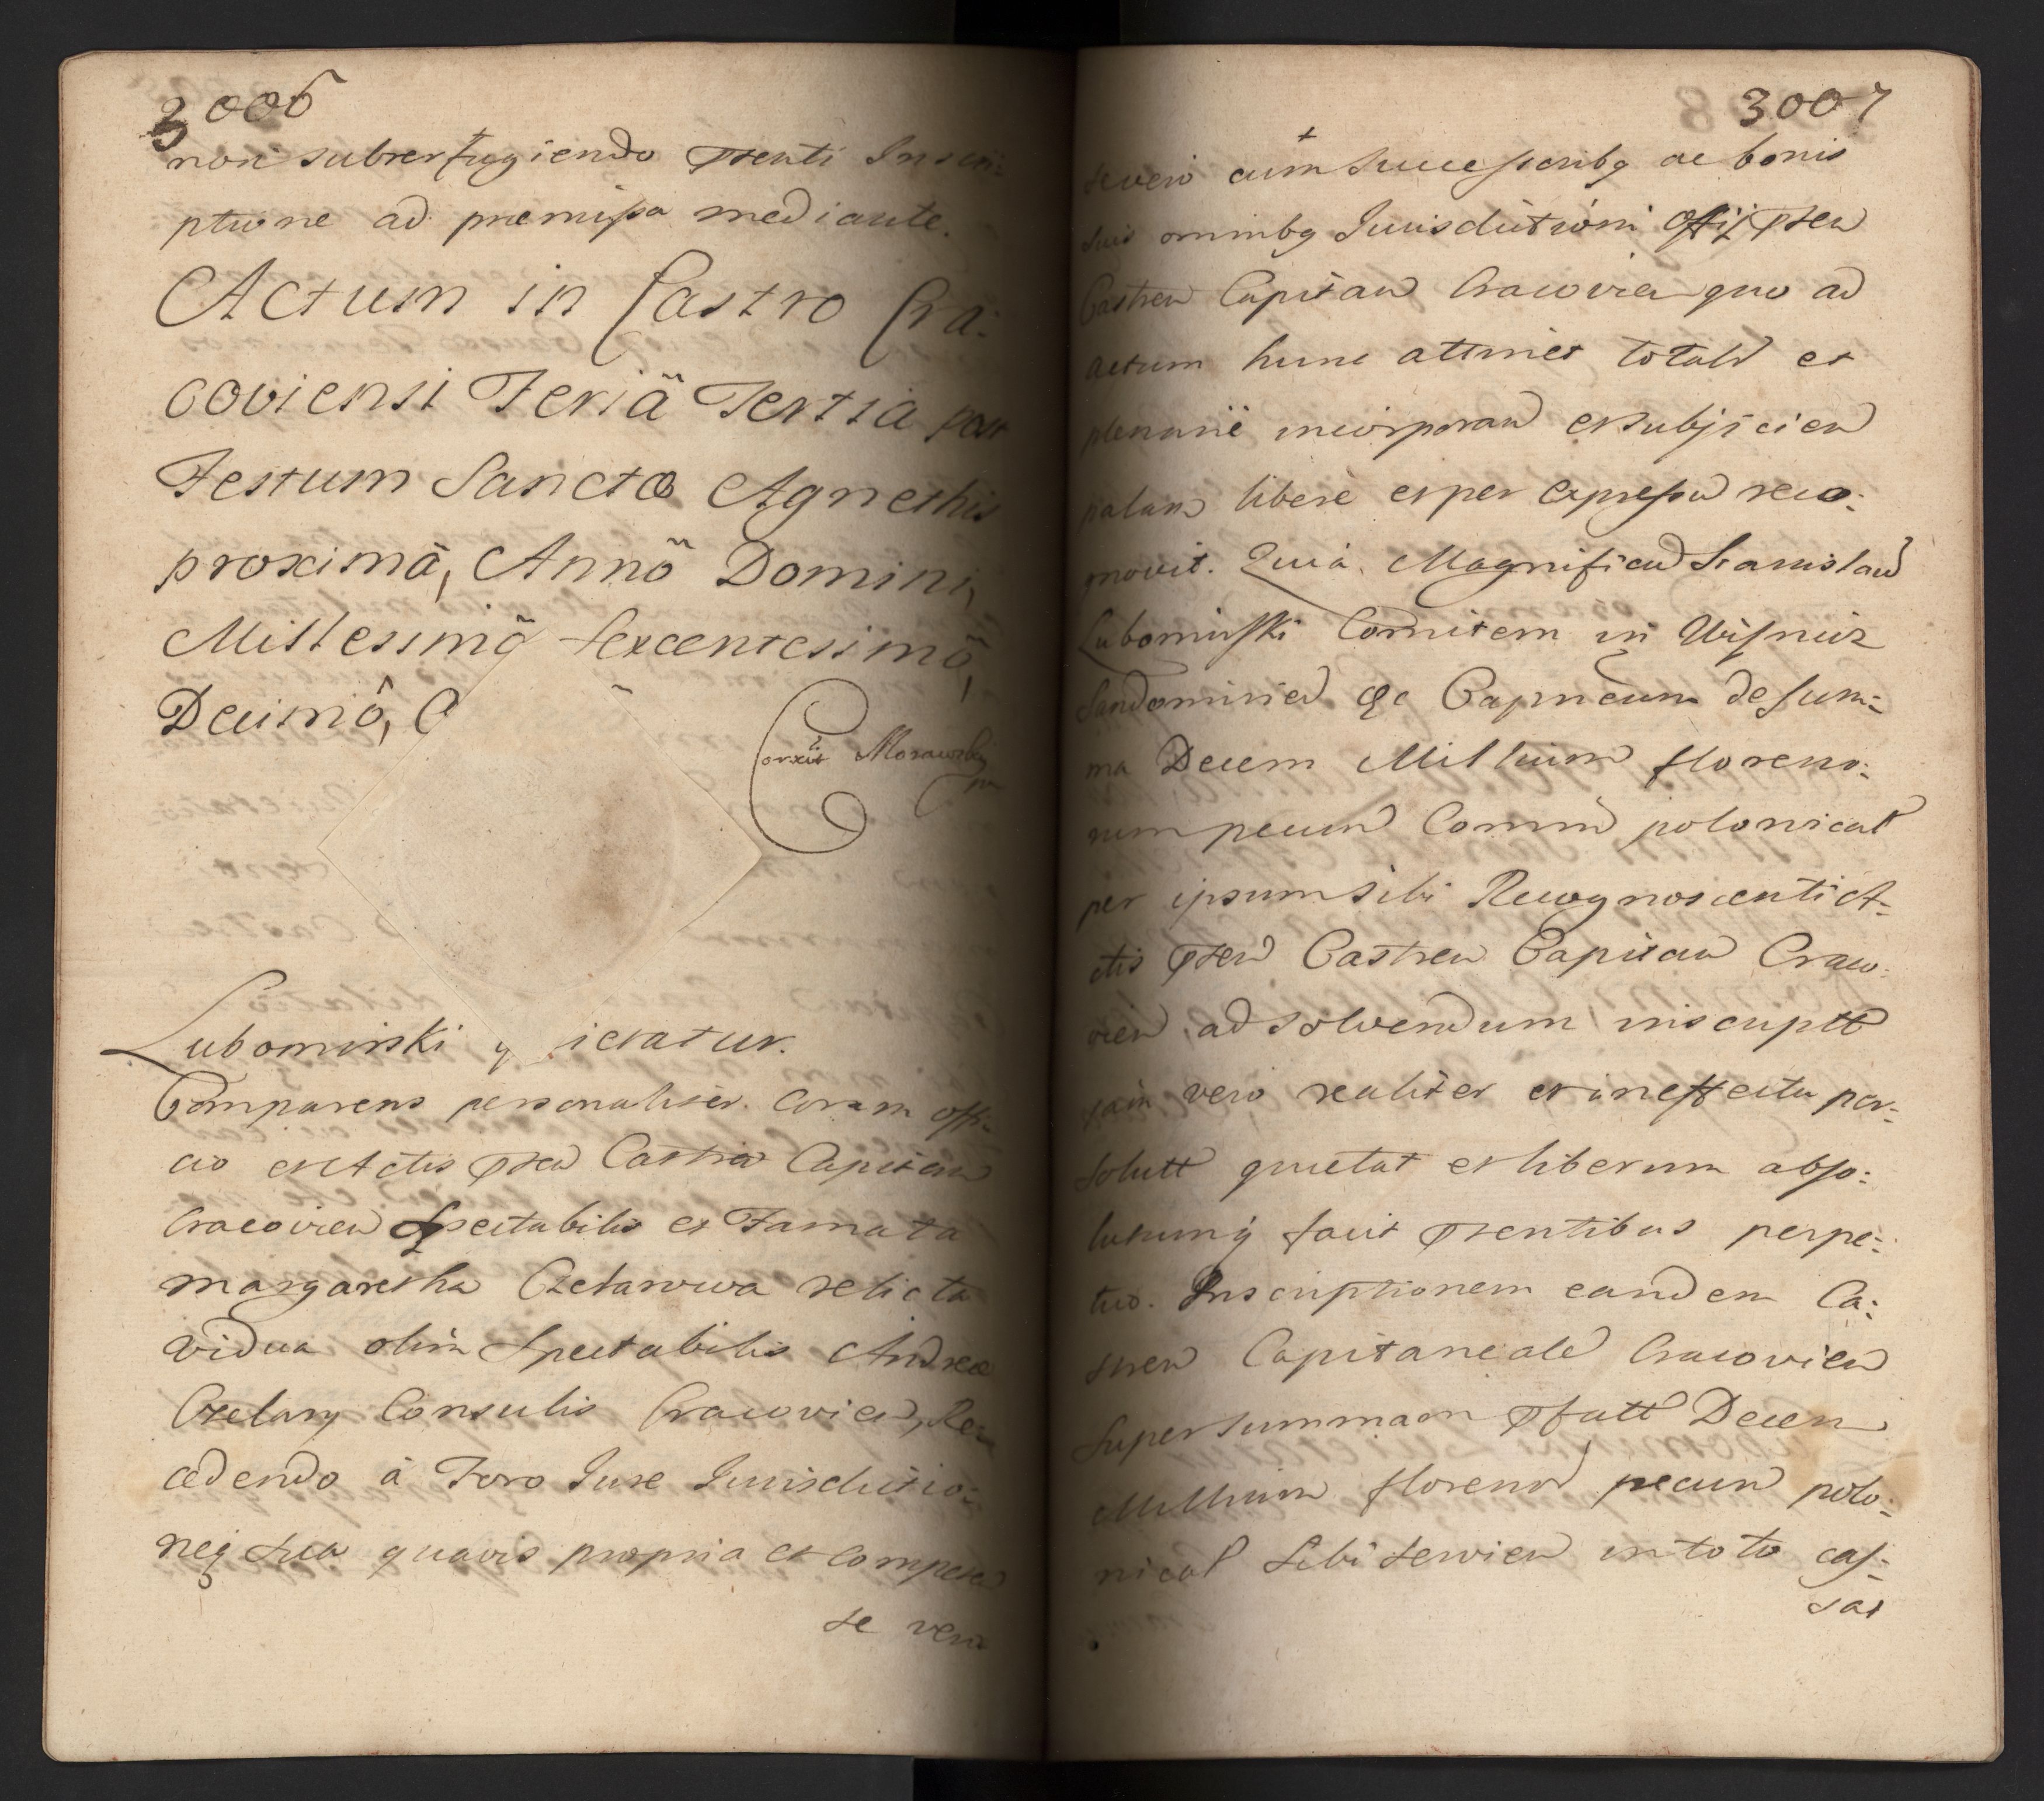 3006
non subterfugiendo pñenti Inscri:
ptione ad premissa mediante.
Actum in Castro Cra:
coviensi Feriä Tertia post
Festum Sanctæ Agnethis
proximâ, Annõ Domini,
Millesimõ sexcentesimõ,
Decimô,
Corrxit Morawski
mp
Lubomirski q ietatur.
Comparens personaliter. Coram offi:
cio et Actis pñen Castren Capitan
Cracovien Spectabilis et Famata
margaretha Celarowa relicta
vidua olim Spectabilis Andreæ
Celary Consulis Cracovien, Re
cedendo â Foro Iure Iurisdictio:
neq sua quavis propria et competen
se vero
3007
se vero cum Successoribq ac bonis
suis omnibq Iurisdictioni Offij pñen
Castren Capitan Cracovien quo ad
actum hunc attinet totalr et
plenarie incorporan et subjicien
palam libere et per expressu reco:
gnovit. Quia Magnificu Stanislau
Lubomirski Comitem in Wisnicz
Sandomirien &c Capneum de sum:
ma Decem Millium floreno:
rum pecun Comm polonical
per ipsum sibi Recognoscenti A:
ctis pñen Castren Capitan Craco:
vien ad solvendum inscriptt
iam vero realiter et in effectu per:
solutt quietat et liberum abso:
lutumq facit pñentibus perpe:
tuo. Inscriptionem eandem Ca:
stren Capitaneale Cracovien
Super summam pfatt Decem
Millium floreno pecun polo:
nical Sibi servien in toto cas:
sat